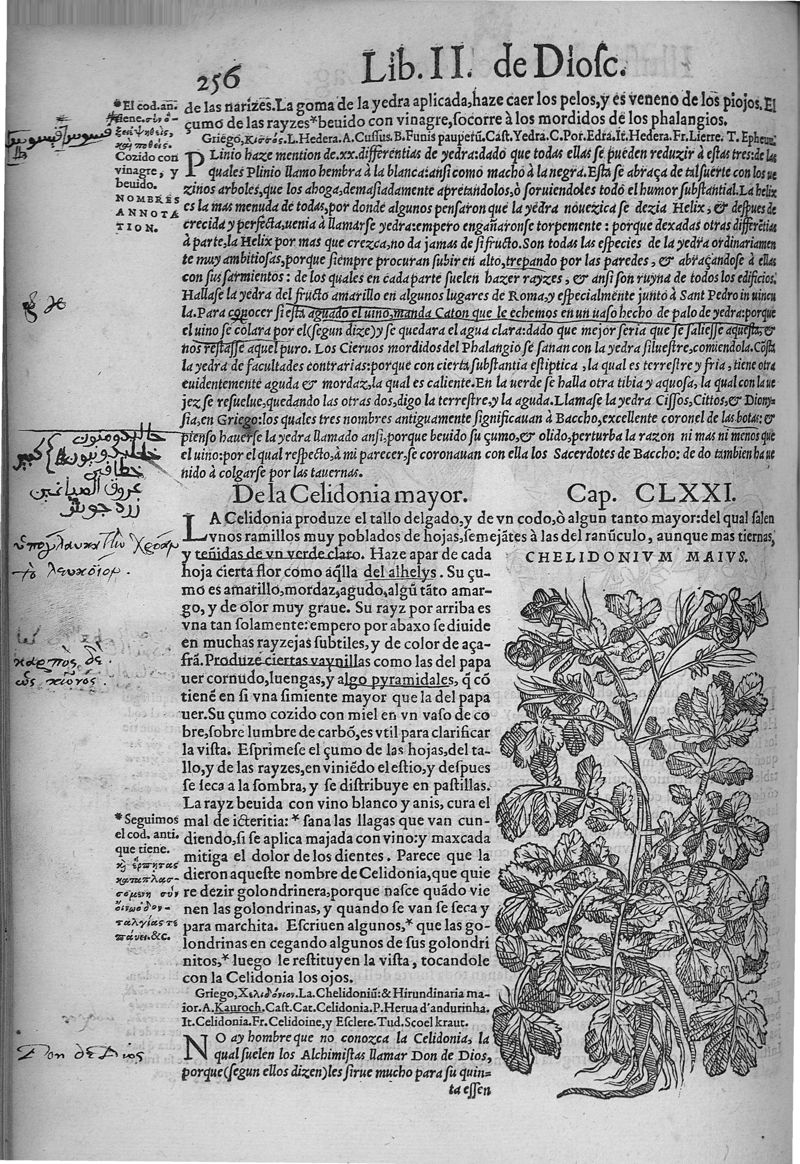 256
Lib. II. de Diosc.
de las narizes. La goma de la yedra aplicada, haze caer los pelos, y es veneno de los piojos. El
çumo de las rayzes * beuido con vinagre, socorre à los mordidos de los phalangios.
*El cod. an.
tiene.
Cozido con
vinagre, y
beuido.
NOMBRES
ANNOTA
TION.
Griego, Κισσός. L. Hedera. A. Cussus. B. Funis pauperũ. Cast. Yedra. C. Por. Edra. It. Hedera. Fr. Lierre. T. Epheuu.
PLinio haze mention de .xx. differentias de yedra: dado que todas ellas se pueden reduzir à estas tres: de las
quales Plinio llamo hembra à la blanca: ansi como macho à la negra. Esta se abraça de tal suerte con los ue
zinos arboles, que los ahoga, demasiadamente apretandolos, ò soruiendoles todo el humor substantial. La helix
es la mas menuda de todas, por donde algunos pensaron que la yedra nouezica se dezia Helix, & despues de
crecida y perfecta, uenia à llamarse yedra: empero engañaronse torpemente: porque dexadas otras differẽtias
à parte, la Helix por mas que crezca, no da jamas de si fructo. Son todas las especies de la yedra ordinariamen
te muy ambitiosas, porque siempre procuran subir en alto, trepando por las paredes, & abraçandose à ellas
con sus sarmientos: de los quales en cada parte suelen hazer rayzes, & ansi son ruyna de todos los edificios.
Hallase la yedra del fructo amarillo en algunos lugares de Roma, y especialmente junto à Sant Pedro in uincu
la. Para conocer si està aguado el uino, manda Caton que le echemos en un uaso hecho de palo de yedra: porque
el uino se colara por el (segun dize) y se quedara el agua clara: dado que mejor seria que se saliesse aquesta, &
nos restasse aquel puro. Los Cieruos mordidos del Phalangio se sanan con la yedra siluestre, comiendola. Cõsta
la yedra de facultades contrarias: porque con cierta substantia estiptica, la qual es terrestre y fria, tiene otra
euidentemente aguda & mordaz, la qual es caliente. En la uerde se halla otra tibia y aquosa, la qual con la ue
jez se resuelue, quedando las otras dos, digo la terrestre, y la aguda. Llamase la yedra Cissos, Cittos, & Diony
sia, en Griego: los quales tres nombres antiguamente significauan à Baccho, excellente coronel de las botas: &
pienso hauerse la yedra llamado ansi: porque beuido su çumo, & olido, perturba la razon ni mas ni menos que
el uino: por el qual respecto, à mi parecer, se coronauan con ella los Sacerdotes de Baccho: de do tambien ha ue
nido à colgarse por las tauernas.
De la Celidonia mayor. Cap. CLXXI.
LA Celidonia produze el tallo delgado, y de vn codo, ò algun tanto mayor: del qual salen
vnos ramillos muy poblados de hojas, semejãtes à las del ranúculo, aunque mas tiernas,
y teñidas de vn verde claro. Haze apar de cada
hoja cierta flor como aq̃lla del alhelys. Su çu-
mo es amarillo, mordaz, agudo, algũ tãto amar-
go, y de olor muy graue. Su rayz por arriba es
vna tan solamente: empero por abaxo se diuide
en muchas rayzejas subtiles, y de color de aça-
frã. Produze ciertas vaynillas como las del papa
uer cornudo, luengas, y algo pyramidales, q̃ cõ
tienẽ en si vna simiente mayor que la del papa
uer. Su çumo cozido con miel en vn vaso de co
bre, sobre lumbre de carbõ, es vtil para clarificar
la vista. Esprimese el çumo de las hojas, del ta-
llo, y de las rayzes, en viniẽdo el estio, y despues
se seca a la sombra, y se distribuye en pastillas.
La rayz beuida con vino blanco y anis, cura el
mal de icteritia: * sana las llagas que van cun-
diendo, si se aplica majada con vino: y maxcada
mitiga el dolor de los dientes. Parece que la
dieron aqueste nombre de Celidonia, que quie
re dezir golondrinera, porque nasce quãdo vie
nen las golondrinas, y quando se van se seca y
para marchita. Escriuen algunos, * que las go-
londrinas en cegando algunos de sus golondri
nitos, * luego le restituyen la vista, tocandole
con la Celidonia los ojos.
CHELIDONIVM MAIVS.
*Seguimos
el cod. anti.
que tiene.
Griego, Χελιδόνιον. La. Chelidoniũ: & Hirundinaria ma-
ior. A. Kauroch. Cast. Cat. Celidonia. P. Herua d'andurinha.
It. Celidonia. Fr. Celidoine, y Esclere. Tud. Scoel kraut.
NO ay hombre que no conozca la Celidonia, la
qual suelen los Alchimistas llamar Don de Dios,
porque (segun ellos dizen) les sirue mucho para su quin-
ta essen
Don de Dios